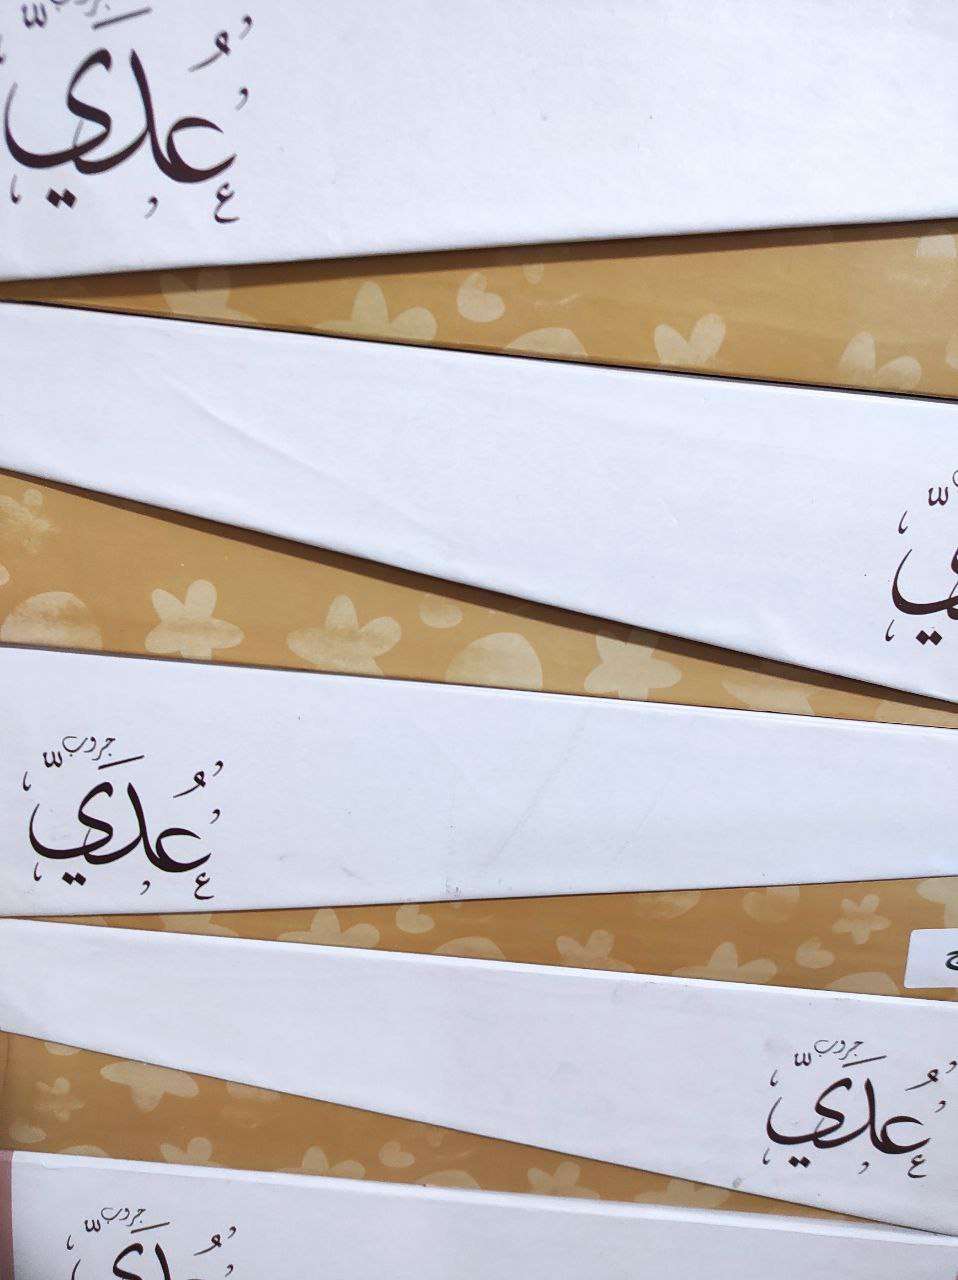 جروب
عُدَيّ
جروب
عُدَيّ
جروب
عُدَيّ
جروب